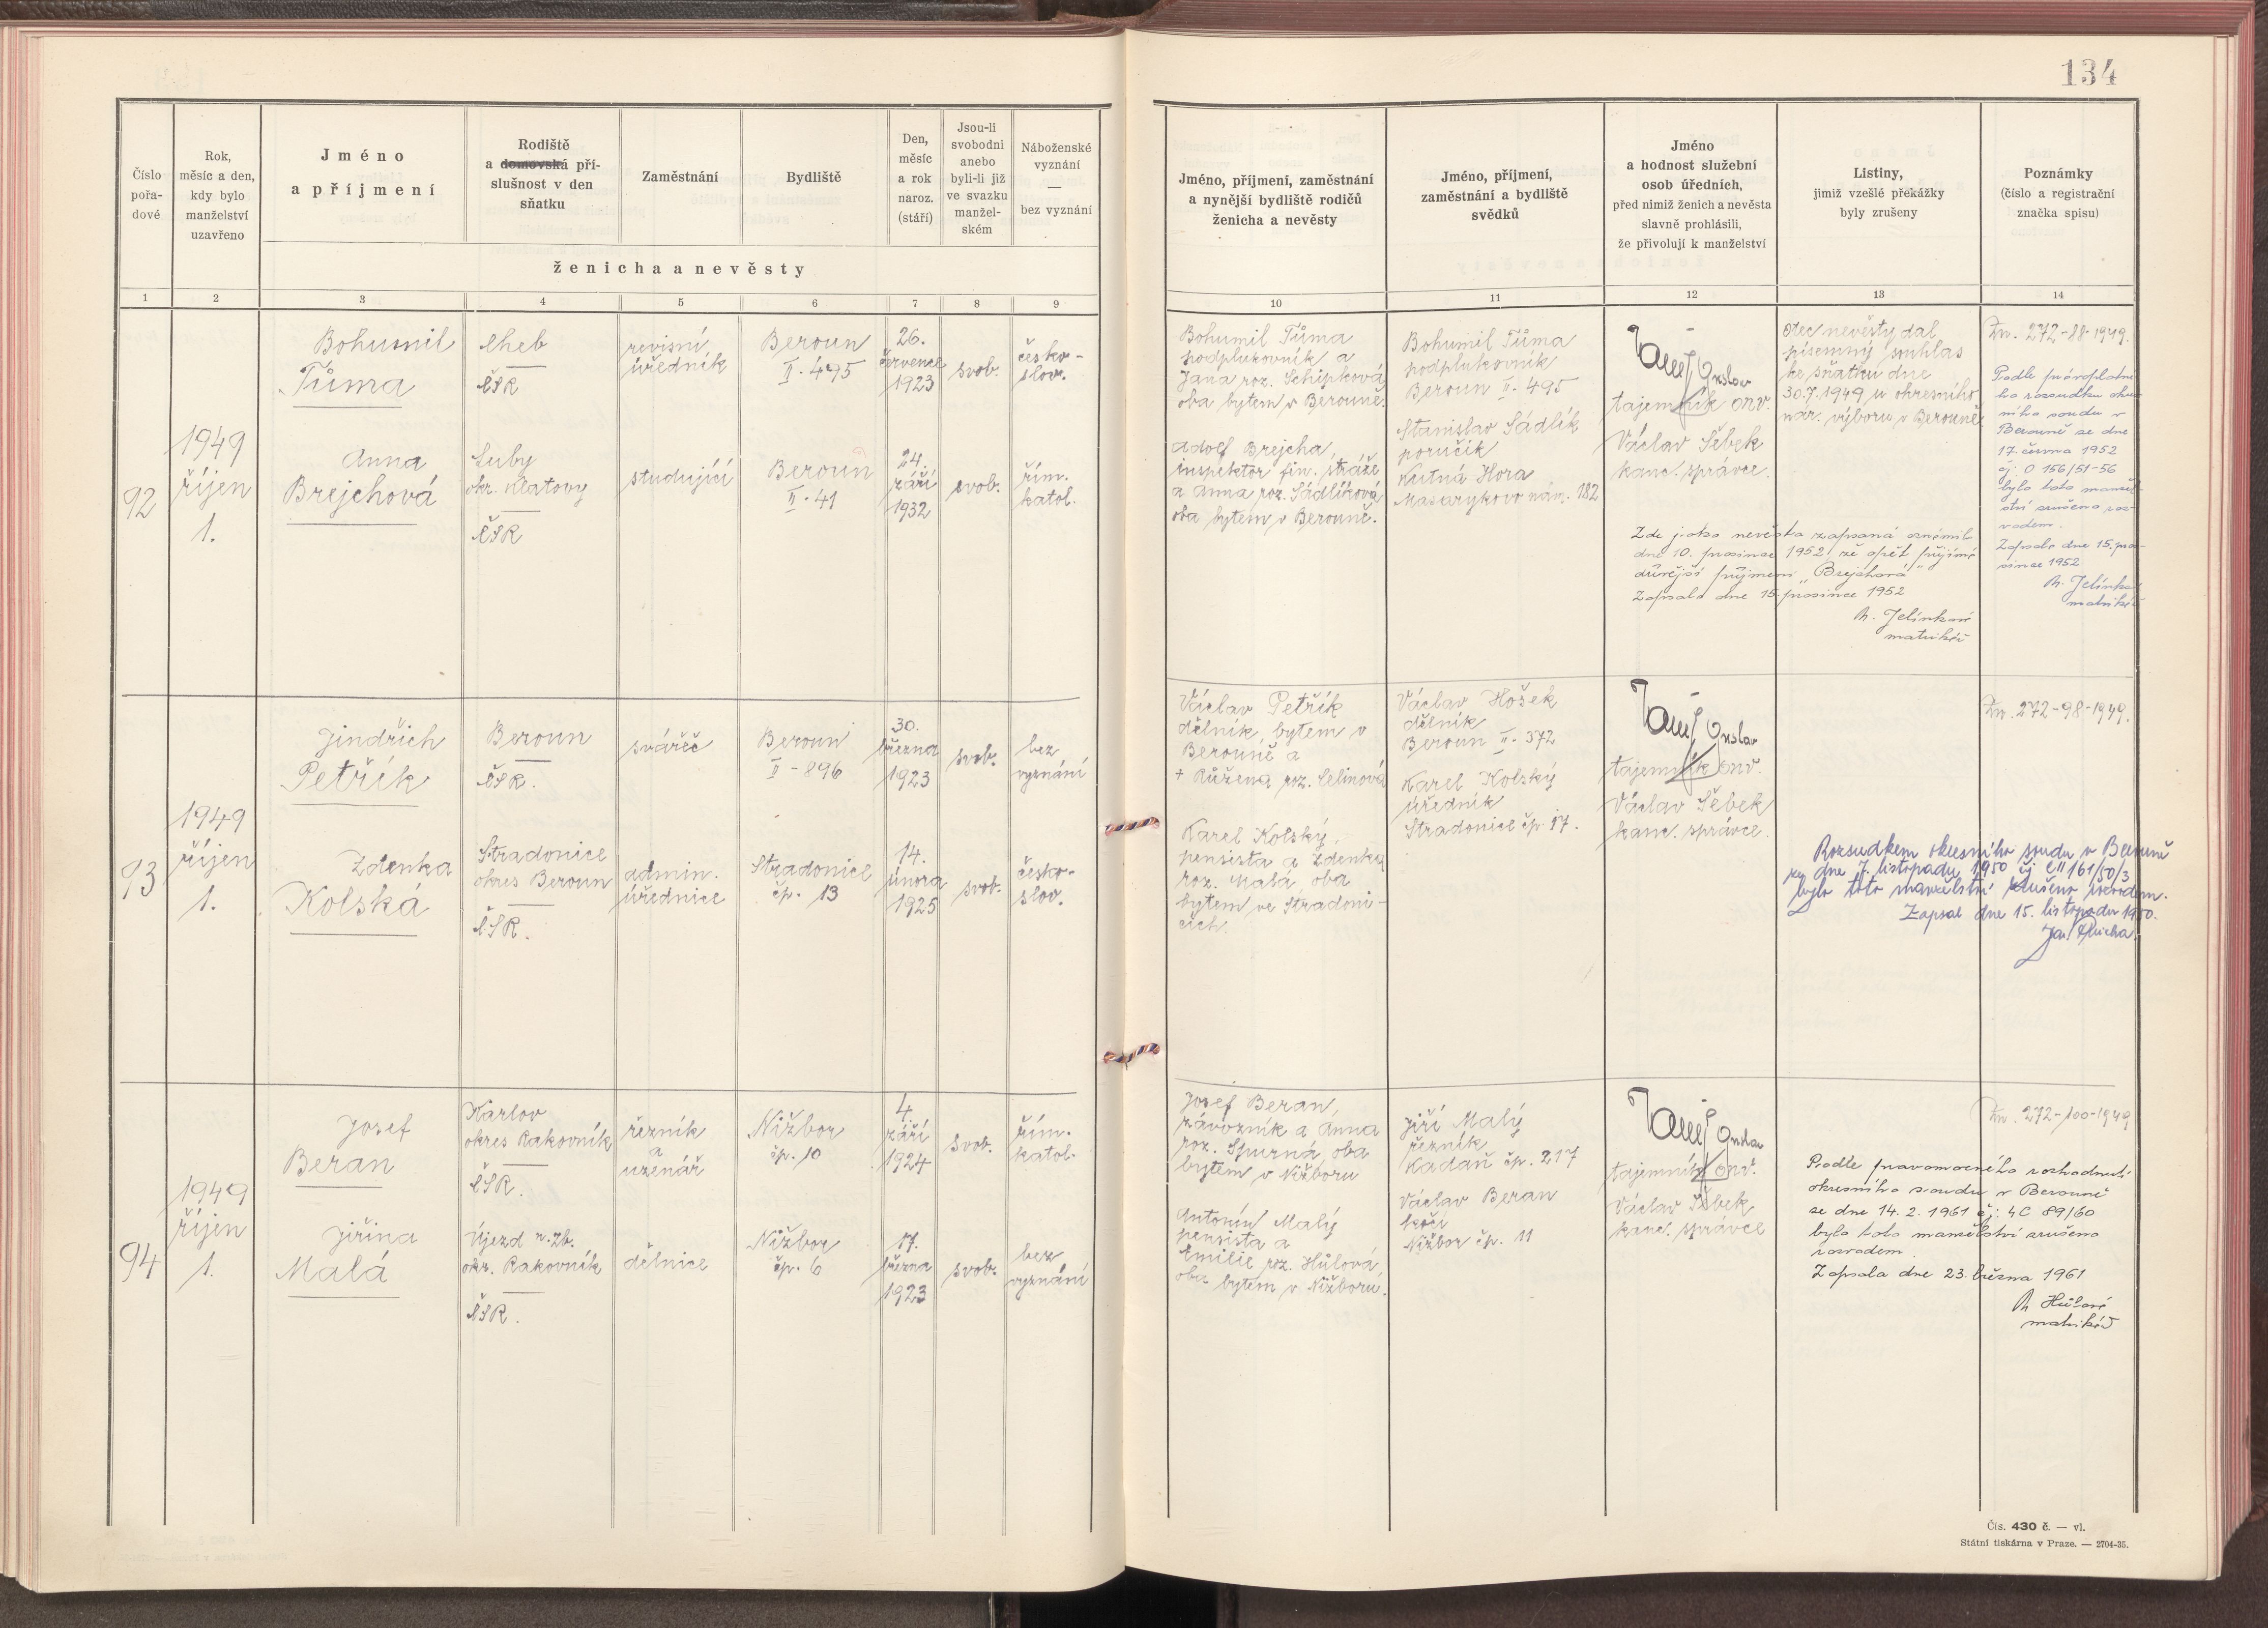 134
Číslo
pořa-
dové
Rok,
měsíc a den,
kdy bylo
manželství
uzavřeno
Jméno
a příjmení
Rodiště
a domovská pří-
slušnost v den
sňatku
Zaměstnání
Bydliště
Den,
měsíc
a rok
naroz.
(stáří)
Jsou-li
svobodni
anebo
byli-li již
ve svazku
manžel-
ském
Náboženské
vyznání
—
bez vyznání
ženicha a nevěsty
Jméno, příjmení, zaměstnání
a nynější bydliště rodičů
ženicha a nevěsty
Jméno, příjmení,
zaměstnání a bydliště
svědků
Jméno
a hodnost služební
osob úředních,
před nimiž ženich a nevěsta
slavně prohlásili,
že přivolují k manželství
Listiny,
jimiž vzešlé překážky
byly zrušeny
Poznámky
(číslo a registrační
značka spisu)
1 2 3 4 5 6 7 8 9 10 11 12 13 14
92
1949
říjen
1.
Bohumil
Tůma
Cheb
ČSR
revisní
úředník
Beroun
II - 495
26.
července
1923
svob.
česko-
slov.
Anna
Brejchová
Luby
okr. Klatovy
ČSR
studující
Beroun
II - 41
24.
září
1932
svob.
řím.
katol.
Bohumil Tůma
podplukovník a
Jana roz. Schipková
oba bytem v Berouně.
Adolf Brejcha,
inspektor fin. stráže
a Anna roz. Sádlíková
oba bytem v Berouně.
Bohumil Tůma
podplukovník
Beroun II - 495
Stanislav Sádlík
poručík
Kutná Hora
Masarykovo nám. 182
tajemník ONV.
Václav Šebek
kanc. správce.
Otec nevěsty dal
písemný souhlas
ke sňatku dne
30.7.1949 u okresního
nár. výboru v Berouně
Zn. 272-88-1949.
Podle právoplatné-
ho rozsudku okres-
ního soudu v
Berouně ze dne
17. června 1952
čj. O 156/51-56
bylo toto manžel-
ství zrušeno roz-
vodem.
Zapsala dne 15. pro-
since 1952
M. Jelínková
matrikář
Zde jako nevěsta zapsaná oznámila
dne 10. prosince 1952, že opět přijímá
dřívější příjmení „Brejchová"
Zapsala dne 15. prosince 1952
M. Jelínková
matrikář
93
1949
říjen
1.
Jindřich
Petřík
Beroun
ČSR.
svářeč
Beroun
II - 896
30.
března
1923
svob.
bez
vyznání
Zdenka
Kolská
Stradonice
okres Beroun
ČSR.
admin.
úřednice
Stradonice
čp. 13
14.
února
1925
svob.
česko-
slov.
Václav Petřík
dělník, bytem v
Berouně a
+ Růžena roz. Selinová
Karel Kolský,
pensista a Zdenka
roz. Malá, oba
bytem ve Stradoni-
cích.
Václav Hošek
dělník
Beroun II - 372
Karel Kolský
úředník
Stradonice čp. 17.
tajemník ONV.
Václav Šebek
kanc. správce.
Zn. 272-98-1949.
Rozsudkem okresního soudu v Berouně
ze dne 7. listopadu 1950 čj CII 161/50/3
bylo toto manželství zrušeno rozvodem.
Zapsal dne 15. listopadu 1950.
94
1949
říjen
1.
Josef
Beran
Karlov
okres Rakovník
ČSR.
řezník
a
uzenář
Nižbor
čp. 10
4.
září
1924
svob.
řím.
katol.
Jiřina
Malá
Újezd n. Zb.
okr. Rakovník
ČSR.
dělnice
Nižbor
čp. 6
17.
března
1923
svob.
bez
vyznání
Josef Beran,
závozník a Anna
roz. Spurná, oba
bytem v Nižboru
Antonín Malý
pensista a
Emilie roz. Hůlová
oba bytem v Nižboru.
Jiří Malý
řezník
Kadaň čp. 217
Václav Beran
kočí
Nižbor čp. 11
tajemník ONV.
Václav Šebek
kanc. správce
Zn. 272-100-1949
Podle pravomocného rozhodnutí
okresního soudu v Berouně
ze dne 14. 2. 1961 čj: 4C 89/60
bylo toto manželství zrušeno
rozvodem.
Zapsala dne 23. března 1961
M Hůlová
matrikář
Čís. 430 č. — vl.
Státní tiskárna v Praze. — 2704-35.